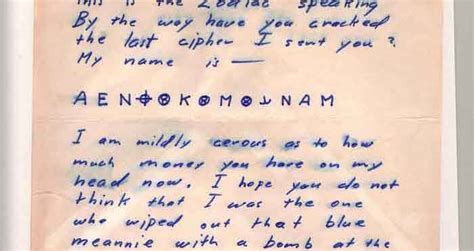 This is the Zodiac speaking
By the way have you cracked
the last cipher I sent you ?
My name is —
A E N ⌖ ⊗ K ⊗ M ⊗ ⅃ N A M
I am mildly cerous as to how
much money you have on my
head now. I hope you do not
think that I was the one
who wiped out that blue
meannie with a bomb at the